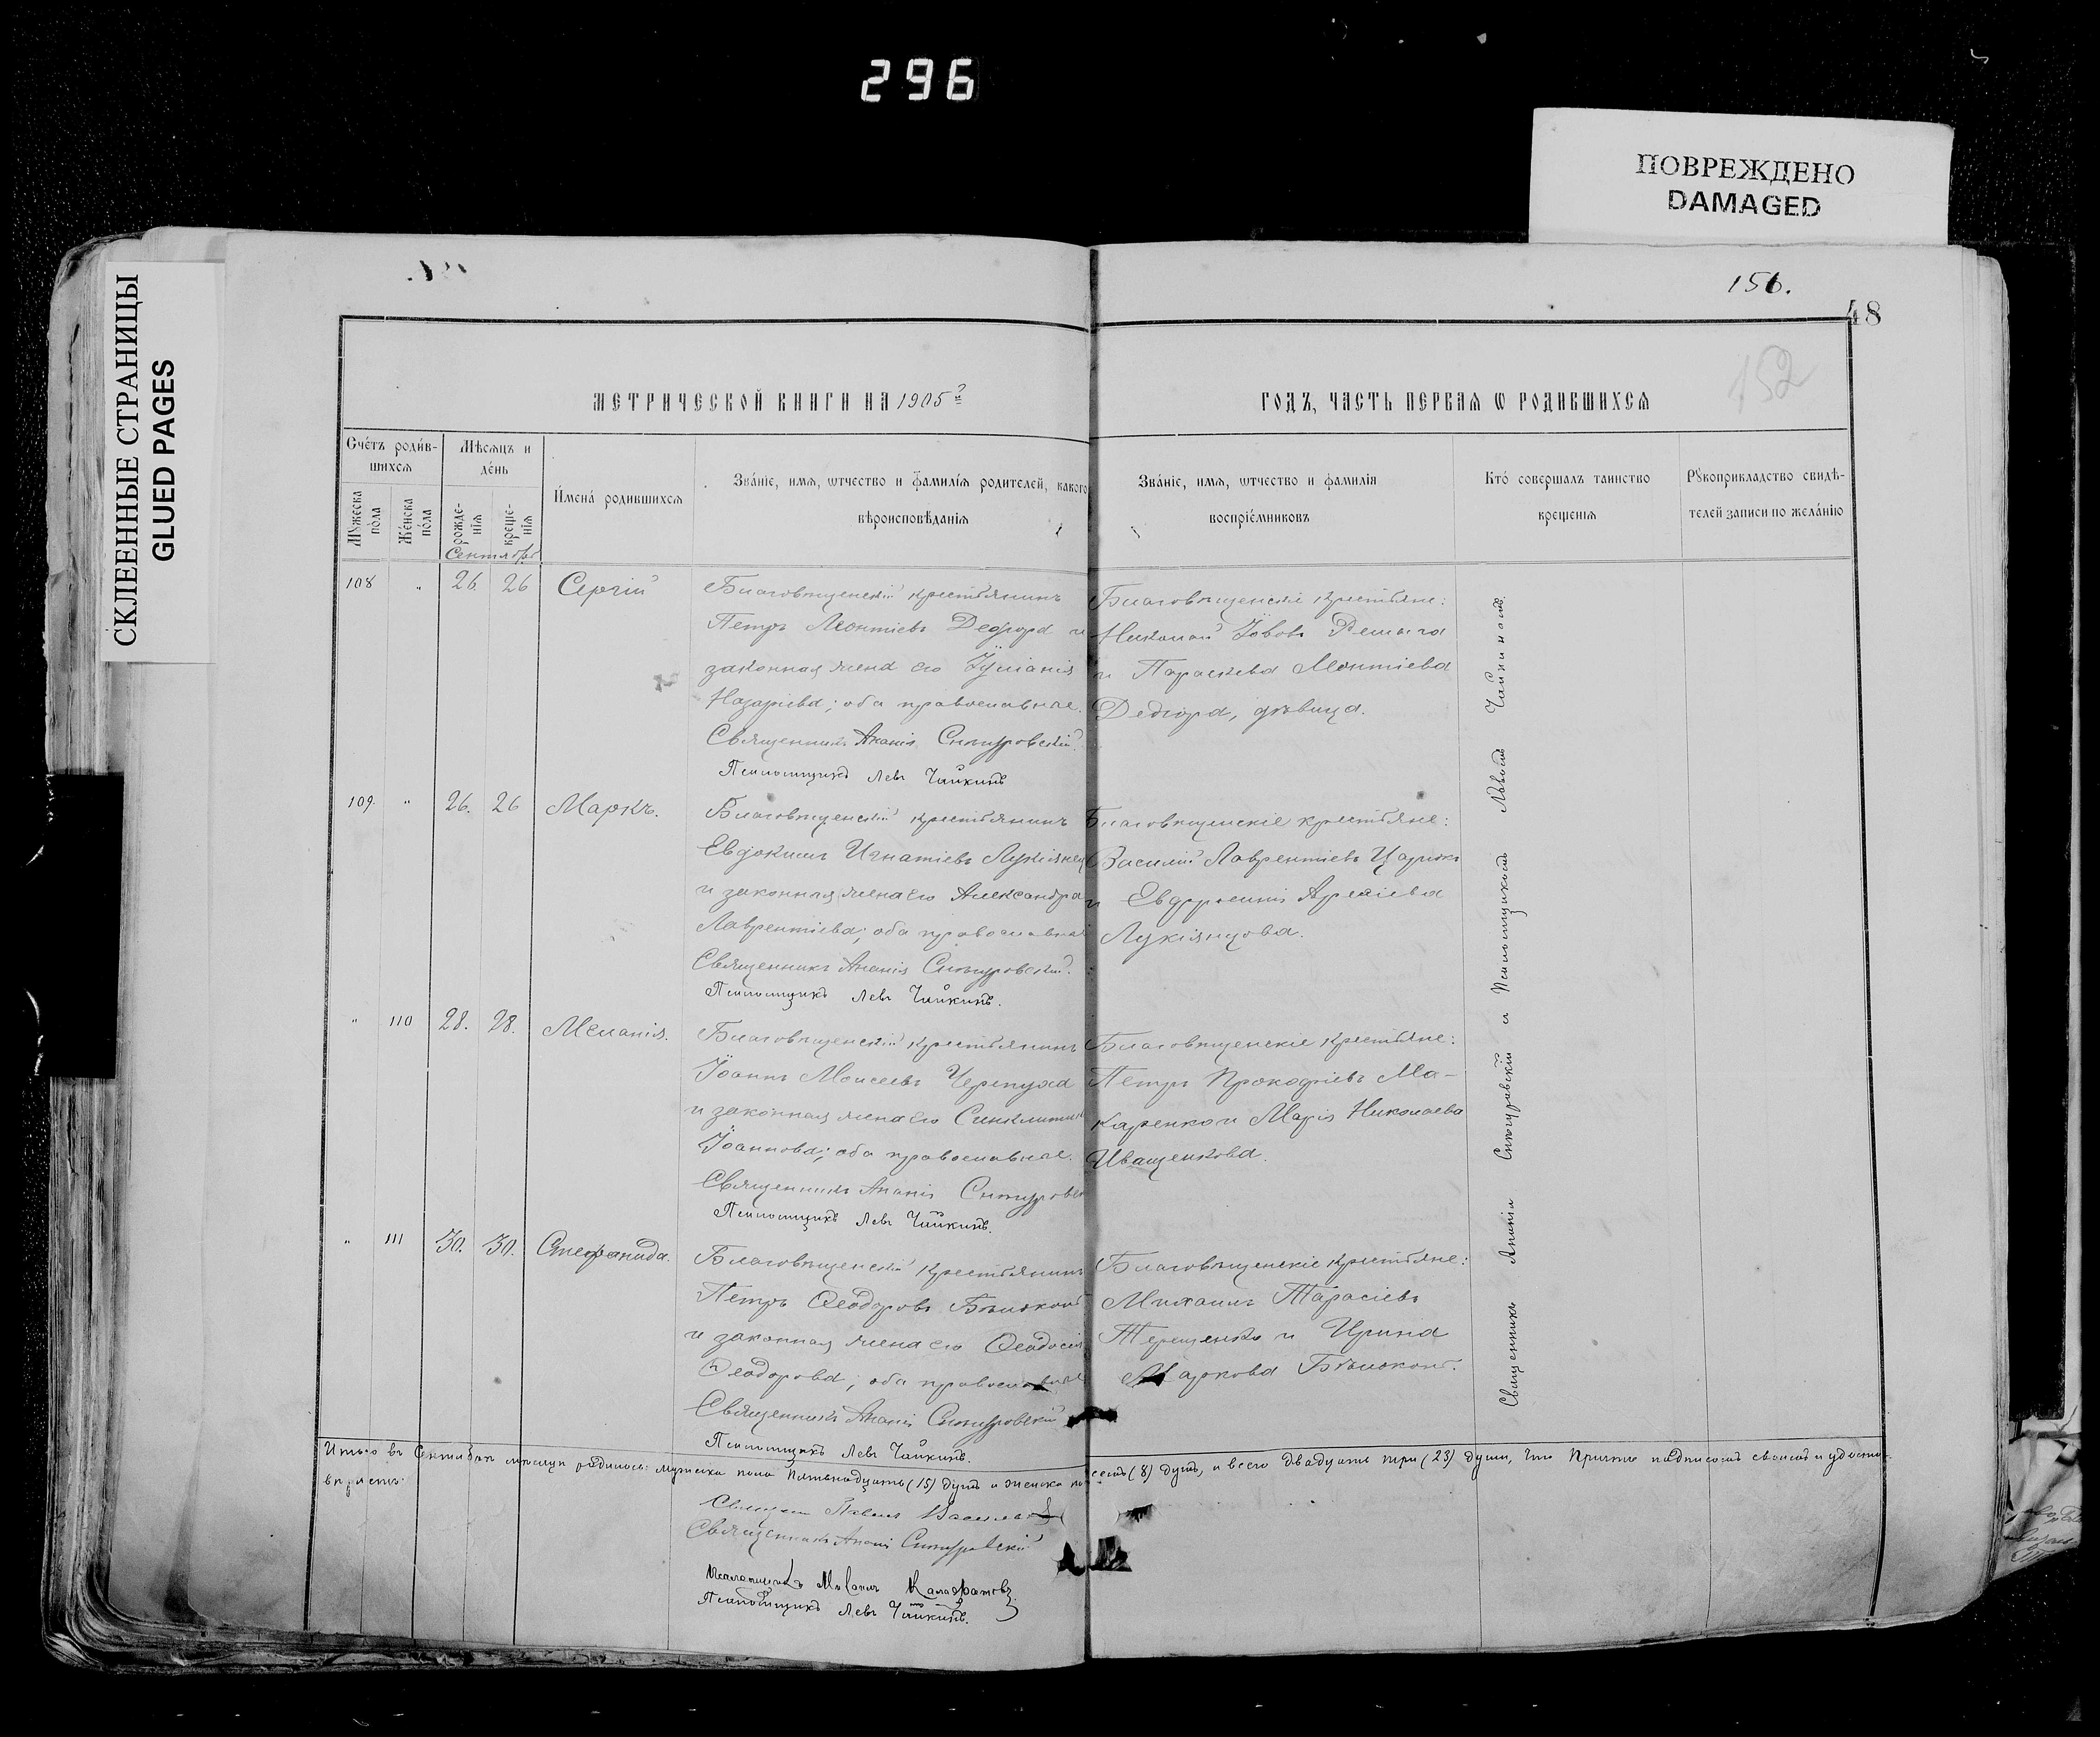 296
ПОВРЕЖДЕНО
DAMAGED
СКЛЕЕННЫЕ СТРАНИЦЫ
GLUED PAGES
156.
48
152
МЕТРИЧЕСКОЙ КНИГИ НА 1905й
ГОДЪ, ЧАСТЬ ПЕРВАѦ Ѡ РОДИВШИХСѦ
Счéтъ родив-
шихсѧ
Мѣсѧцъ и
дéнь
Мꙋжеска
пóла
Жéнска
пóла
рожде-
нія
креще-
нія
Сентябрь
Именá родившихсѧ
Звáніе, имѧ, ѡтчество и фамиліѧ родителей, какого
вѣроисповѣданія
Звáніе, имѧ, ѡтчество и фамилія
воспріéмниковъ
Ктó совершалъ таинство
крещенія
Рꙋкоприкладство свидѣ-
телей записи по желáнію
108 " 26. 26 Сергій
Благовѣщенскій крестьянинъ
Петръ Леонтіевъ Дедюра и
законная жена его Іуліанія
Назаріева; оба православные.
Священникъ Ананія Снѣгуровскій.
Псаломщикъ Левъ Чайкинъ
Благовѣщенскіе крестьяне:
Николай Іововъ
и Параскева Леонтіева
Дедюра, дѣвица.
109. " 26. 26 Маркъ.
Благовѣщенскій крестьянинъ
Евдокимъ Игнатіевъ Лукіянец
и законная жена его Александра
Лаврентіева; оба православные
Священникъ Ананія Снѣгуровскій.
Псаломщикъ Левъ Чайкинъ.
Благовѣщенскіе крестьяне:
Василій Лаврентіевъ
и Евфросинія
Лукіянцова.
" 110 28. 28. Меланія.
Благовѣщенскій крестьянинъ
Іоаннъ Моисеевъ Черепуха
и законная жена его Синклитикія
Іоаннова; оба православные.
Священникъ Ананія Снѣгуровск
Псаломщикъ Левъ Чайкинъ.
Благовѣщенскіе крестьяне:
Петръ Прокофіевъ Ма-
каренко и Марія Николаева
Иващенкова.
" 111 30. 30. Стефанида.
Благовѣщенскій крестьянинъ
Петръ Ѳеодоровъ Бѣлоконь
и законная жена его Ѳеодосія
Ѳеодорова; оба православные
Священникъ Ананія Снѣгуровскій
Псаломщикъ Левъ Чайкинъ.
Благовѣщенскіе крестьяне:
Михаилъ Тарасіевъ
Терещенко и Ирина
Маркова Бѣлоконь.
Священникъ Ананія Снѣгуровскій и Псаломщикомъ Львомъ Чайкинымъ.
Итого въ Сентябрѣ мѣсяцѣ родилось: мужеска пола пятьнадцать (15) душъ и женска по
семь (8) душъ, и всего двадцать три (23) души, что Причтъ подписомъ своимъ и удосто-
вѣряетъ.
Священникъ Павелъ
Священникъ Ананія Снѣгуровскій
Псаломщикъ Михаилъ
Псаломщикъ Левъ Чайкинъ.